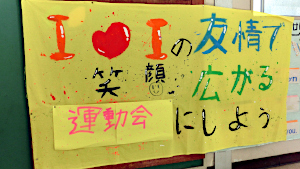 I❤Iの友情で
笑顔広がる
運動会にしよう